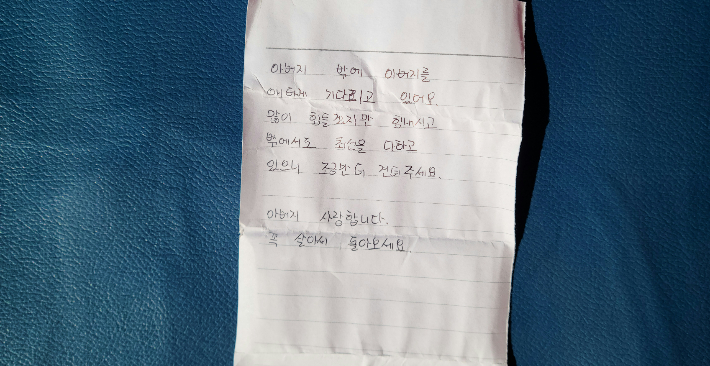 아버지 밖에 아버지를
애타게 기다리고 있어요.
많이 힘들겠지만 힘내시고
밖에서도 최선을 다하고
있으니 조금만 더 견뎌주세요.
아버지 사랑합니다.
꼭 살아서 돌아오세요.